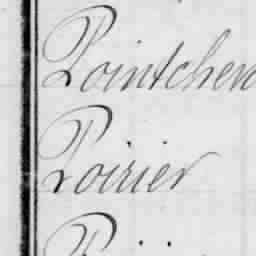 Pointchev
Poirier